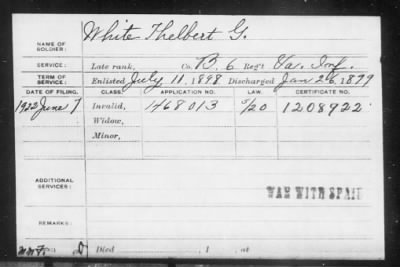 NAME OF SOLDIER: White Thelbert G.
SERVICE: Late rank, Co. B. 6 Reg't Va. Inf.
TERM OF SERVICE: Enlisted July 11, 1898 Discharged Jan 26, 1899
DATE OF FILING. CLASS. APPLICATION NO. LAW. CERTIFICATE NO.
1922 June 7 Invalid, 1468013 5/20 1208922
Widow,
Minor,
ADDITIONAL SERVICES: WAR WITH SPAIN
REMARKS:
Died , 1 , at